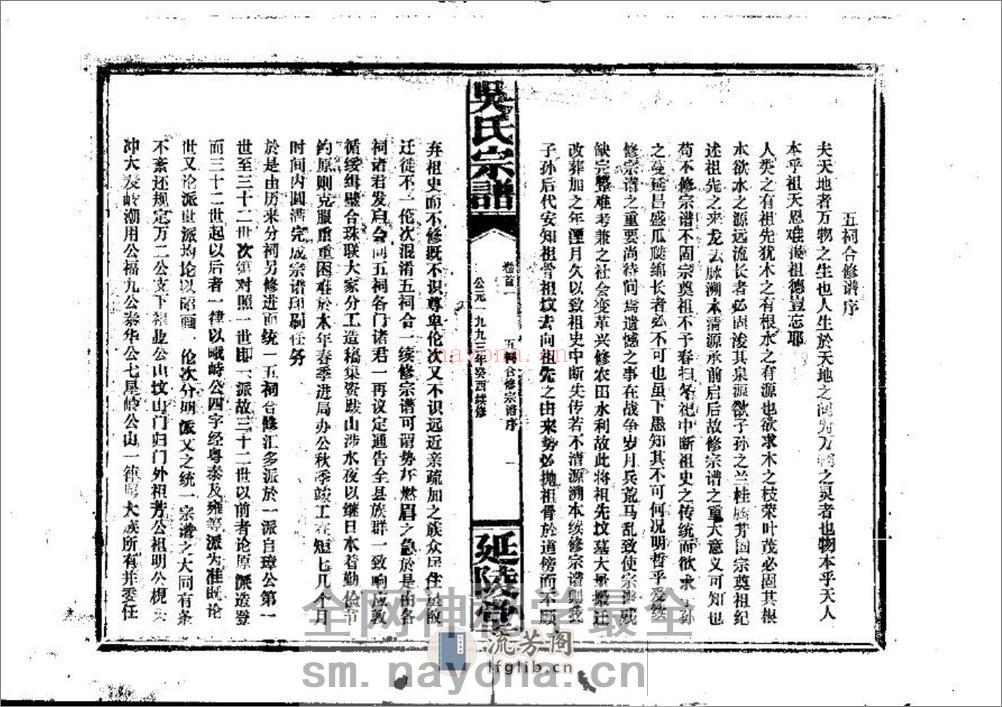 五祠合修谱序
夫天地者万物之生也人生於天地之间为万物之灵者也物本乎天人
本乎祖天恩难报祖德豈忘耶
人类之有祖先犹木之有根水之有源也欲求木之枝荣叶茂必固其根
本欲水之源远流长者必固浚其泉源欲子孙之兰桂腾芳固宗奠祖纪
述祖先之来龙去脉溯本清源承前启后故修宗谱之重大意义可知也
苟不修宗谱不固宗奠祖不予春扫冬祀中断祖史之传统而欲求子孙
之蔓延昌盛瓜瓞绵长者必不可也虽下愚知其不可何况明哲乎爰然
修宗谱之重要尚待问焉遗憾之事在战争岁月兵荒马乱致使宗谱残
缺完整难考兼之社会变革兴修农田水利故此将祖先坟墓大量搬迁
改葬加之年湮月久以致祖史中断失传若不清源溯本续修宗谱
子孙后代安知祖骨祖坟去向祖先之由来势必抛祖骨於道傍而不顾
吳氏宗譜
卷首一
五祠合修宗谱序
一
公元一九九三年癸酉续修
延陵堂
弃祖史而不修既不识尊卑伦次又不识远近亲疏加之族众居住
迁徙不一伦次混淆五祠合一续修宗谱可谓势在燃眉之急於是由各
祠诸君发启会同五祠各门诸君一再议定通告全县族群一致响应敦
循绥缉璧合珠联大家分工造稿集资跋山涉水夜以继日本着勤俭节
约原则克服重重困难於本年春季进局办公秋季竣工在短七几个月
时间内圆满完成宗谱印刷任务
於是由历来分祠另修进而统一五祠合修江多派於一派自璋公第一
世至三十二世次第对照一世即一派故三十二世以前者论原派造登
而三十二世起以后者一律以峨峙公四字经粤泰及雍等派为准既论
世又论派世派均论以昭画一伦次分明派文之统一宗谱之大同有条
不紊还规定万二公支下福业公山坟山门归门外祖芳公祖明公槐
冲大发岭潮用公福九公泰华公七房岭公山一律归大族所有并委任
全网神秘学最全
nayona.com
流芳阁
lfglib.cn
sm.nayona.cn